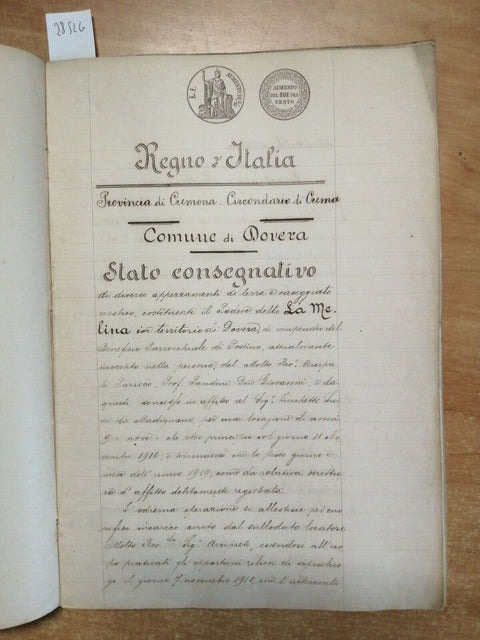 2852G
L. 1.
AUMENTO
AUMENTO
DEL DUE PER
CENTO
Regno d'Italia
Provincia di Cremona. Circondario di Crema
Comune di Dovera
Stato consegnativo
di diversi appezzamenti di terra e caseggiato
rustico, costituenti il Podere detto La Me-
lina in territorio di Dovera, di compendio del
Beneficio Parrocchiale di Postino, attualmente
investito nella persona del Molto Rev. Arcipre
te Parroco, Prof. Pandini Don Giovanni, e da
questi concesso in affitto al Sig. Zucchetti Lui
gi di Madignano, per una locazione di anni
9 - nove - che ebbe principio col giorno 11 No
vembre 1910, e terminerà con lo stesso giorno e
mese dell'anno 1919, come da relativa scrittu
ra d'affitto debitamente registrata
L'odierna operazione si allestisce per ono
rifico incarico avuto dal sullodato locatore
Molto Rev.do Sig. Arciprete, essendosi all'uo
po praticati gli opportuni rilievi di sopraluo
go il giorno 7 novembre 1910, con l'intervento